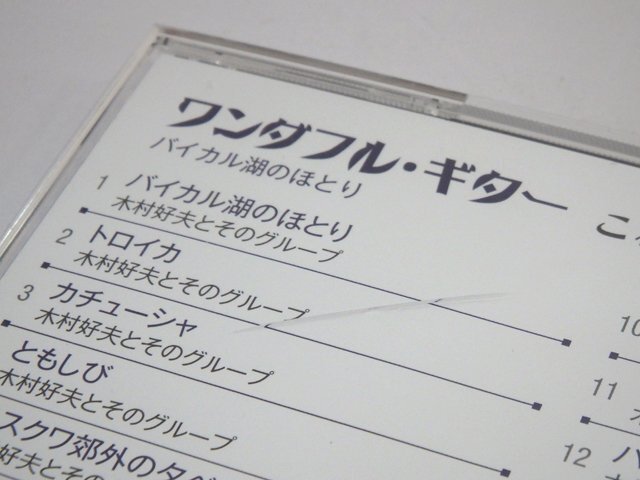 ワンダフル・ギター
バイカル湖のほとり
1 バイカル湖のほとり
木村好夫とそのグループ
2 トロイカ
木村好夫とそのグループ
3 カチューシャ
木村好夫とそのグループ
ともしび
木村好夫とそのグループ
スクワ郊外の夕べ
好夫とそのグループ
10
11
12